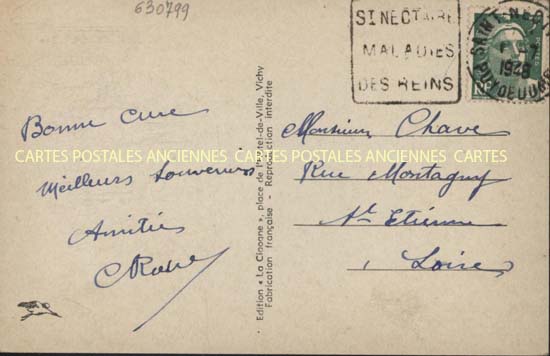 630799
SINECTAIRE
MALADIES
DES REINS
SAINT-NECTAIRE
1948
PUY DE DOME
Bonne Cure
Meilleurs Souvenirs
Amitiés
CARTES POSTALES ANCIENNES CARTES POSTALES ANCIENNES CARTES
Edition « La Cigogne », place de l'Hôtel-de-Ville, Vichy
Fabrication française - Reproduction interdite
Monsieur Chave
Rue Montagny
St Etienne
Loire